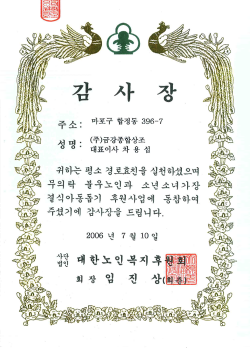 감 사 장
주소: 마포구 합정동 396-7
성명: (주)금강종합상조
대표이사 차 용 섭
귀하는 평소 경로효친을 실천하셨으며
무의탁 불우노인과 소년소녀가장
결식아동돕기 후원사업에 동참하여
주셨기에 감사장을 드립니다.
2006 년 7 월 10 일
사단법인 대한노인복지후원회
회 장 임 진 상